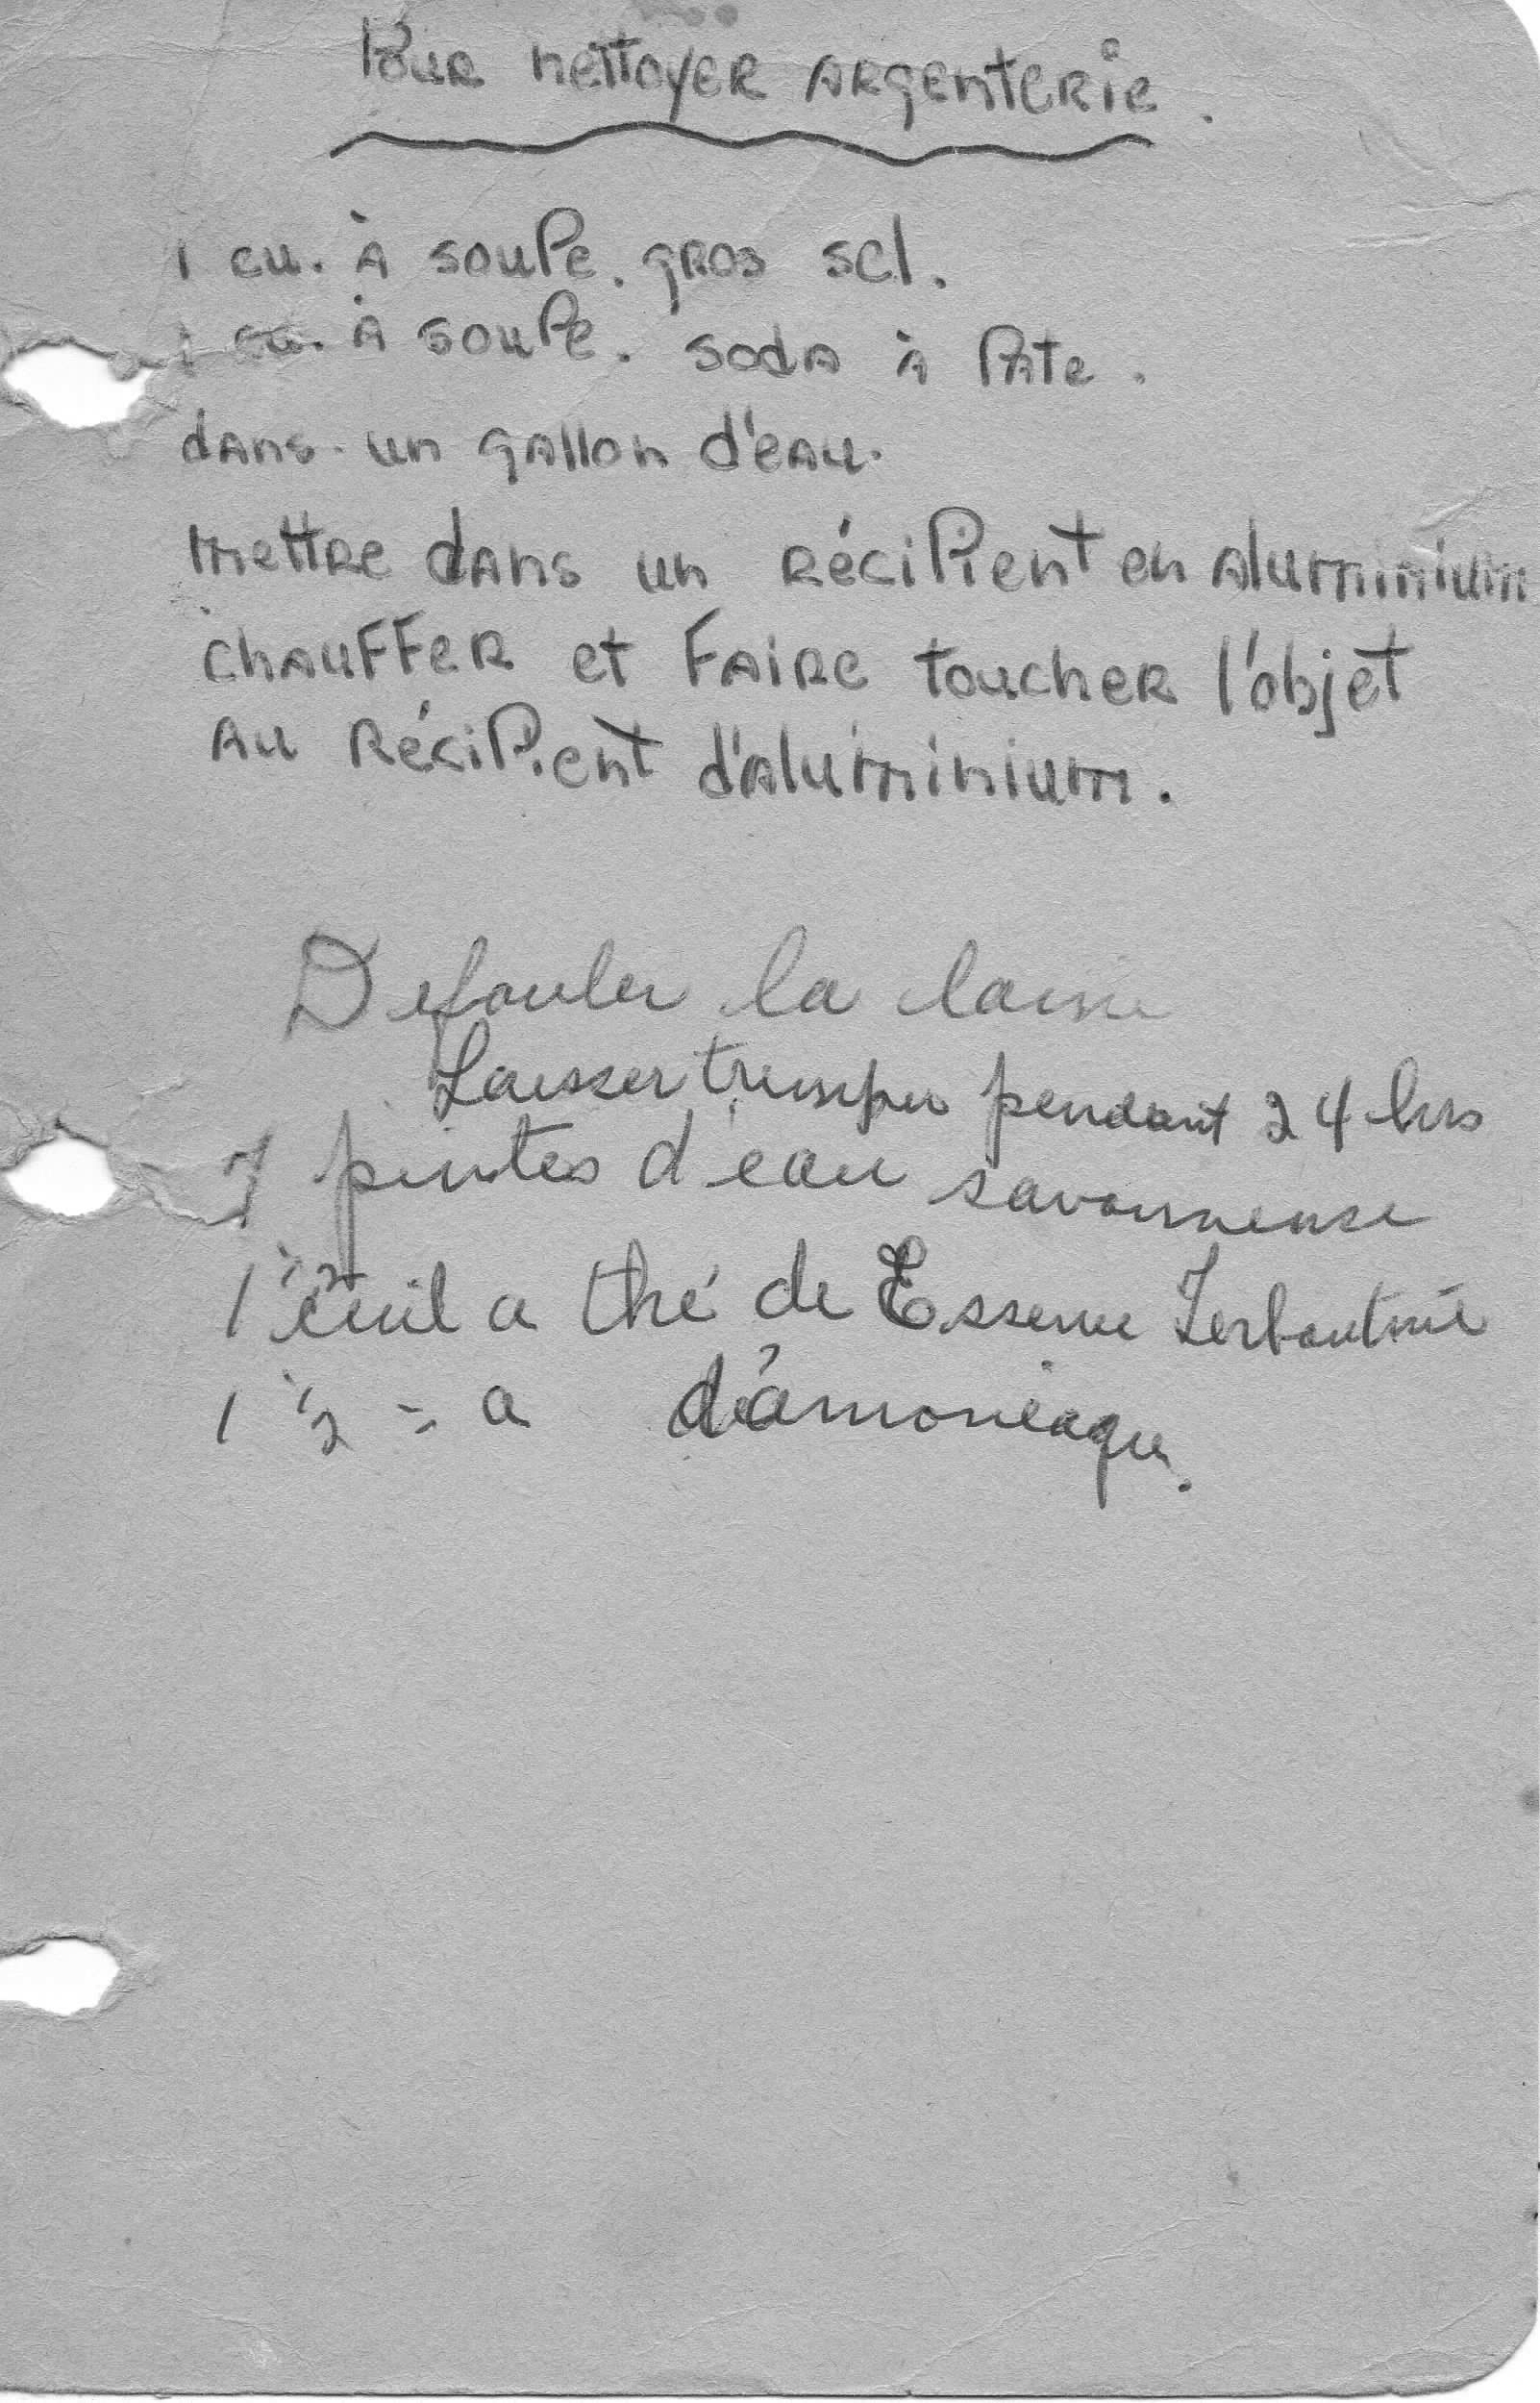 Pour nettoyer argenterie.
1 cu. à soupe. gros sel.
1 cu. à soupe. soda à pâte.
dans un gallon d'eau.
mettre dans un récipient en aluminium
chauffer et faire toucher l'objet
au récipient d'aluminium.
Defouler la laine
Laisser tremper pendant 24 hrs
7 pintes d'eau savonneuse
1 1/2 cuil a thé de Essence Terbentine
1 1/2 = a d'amoniaque.